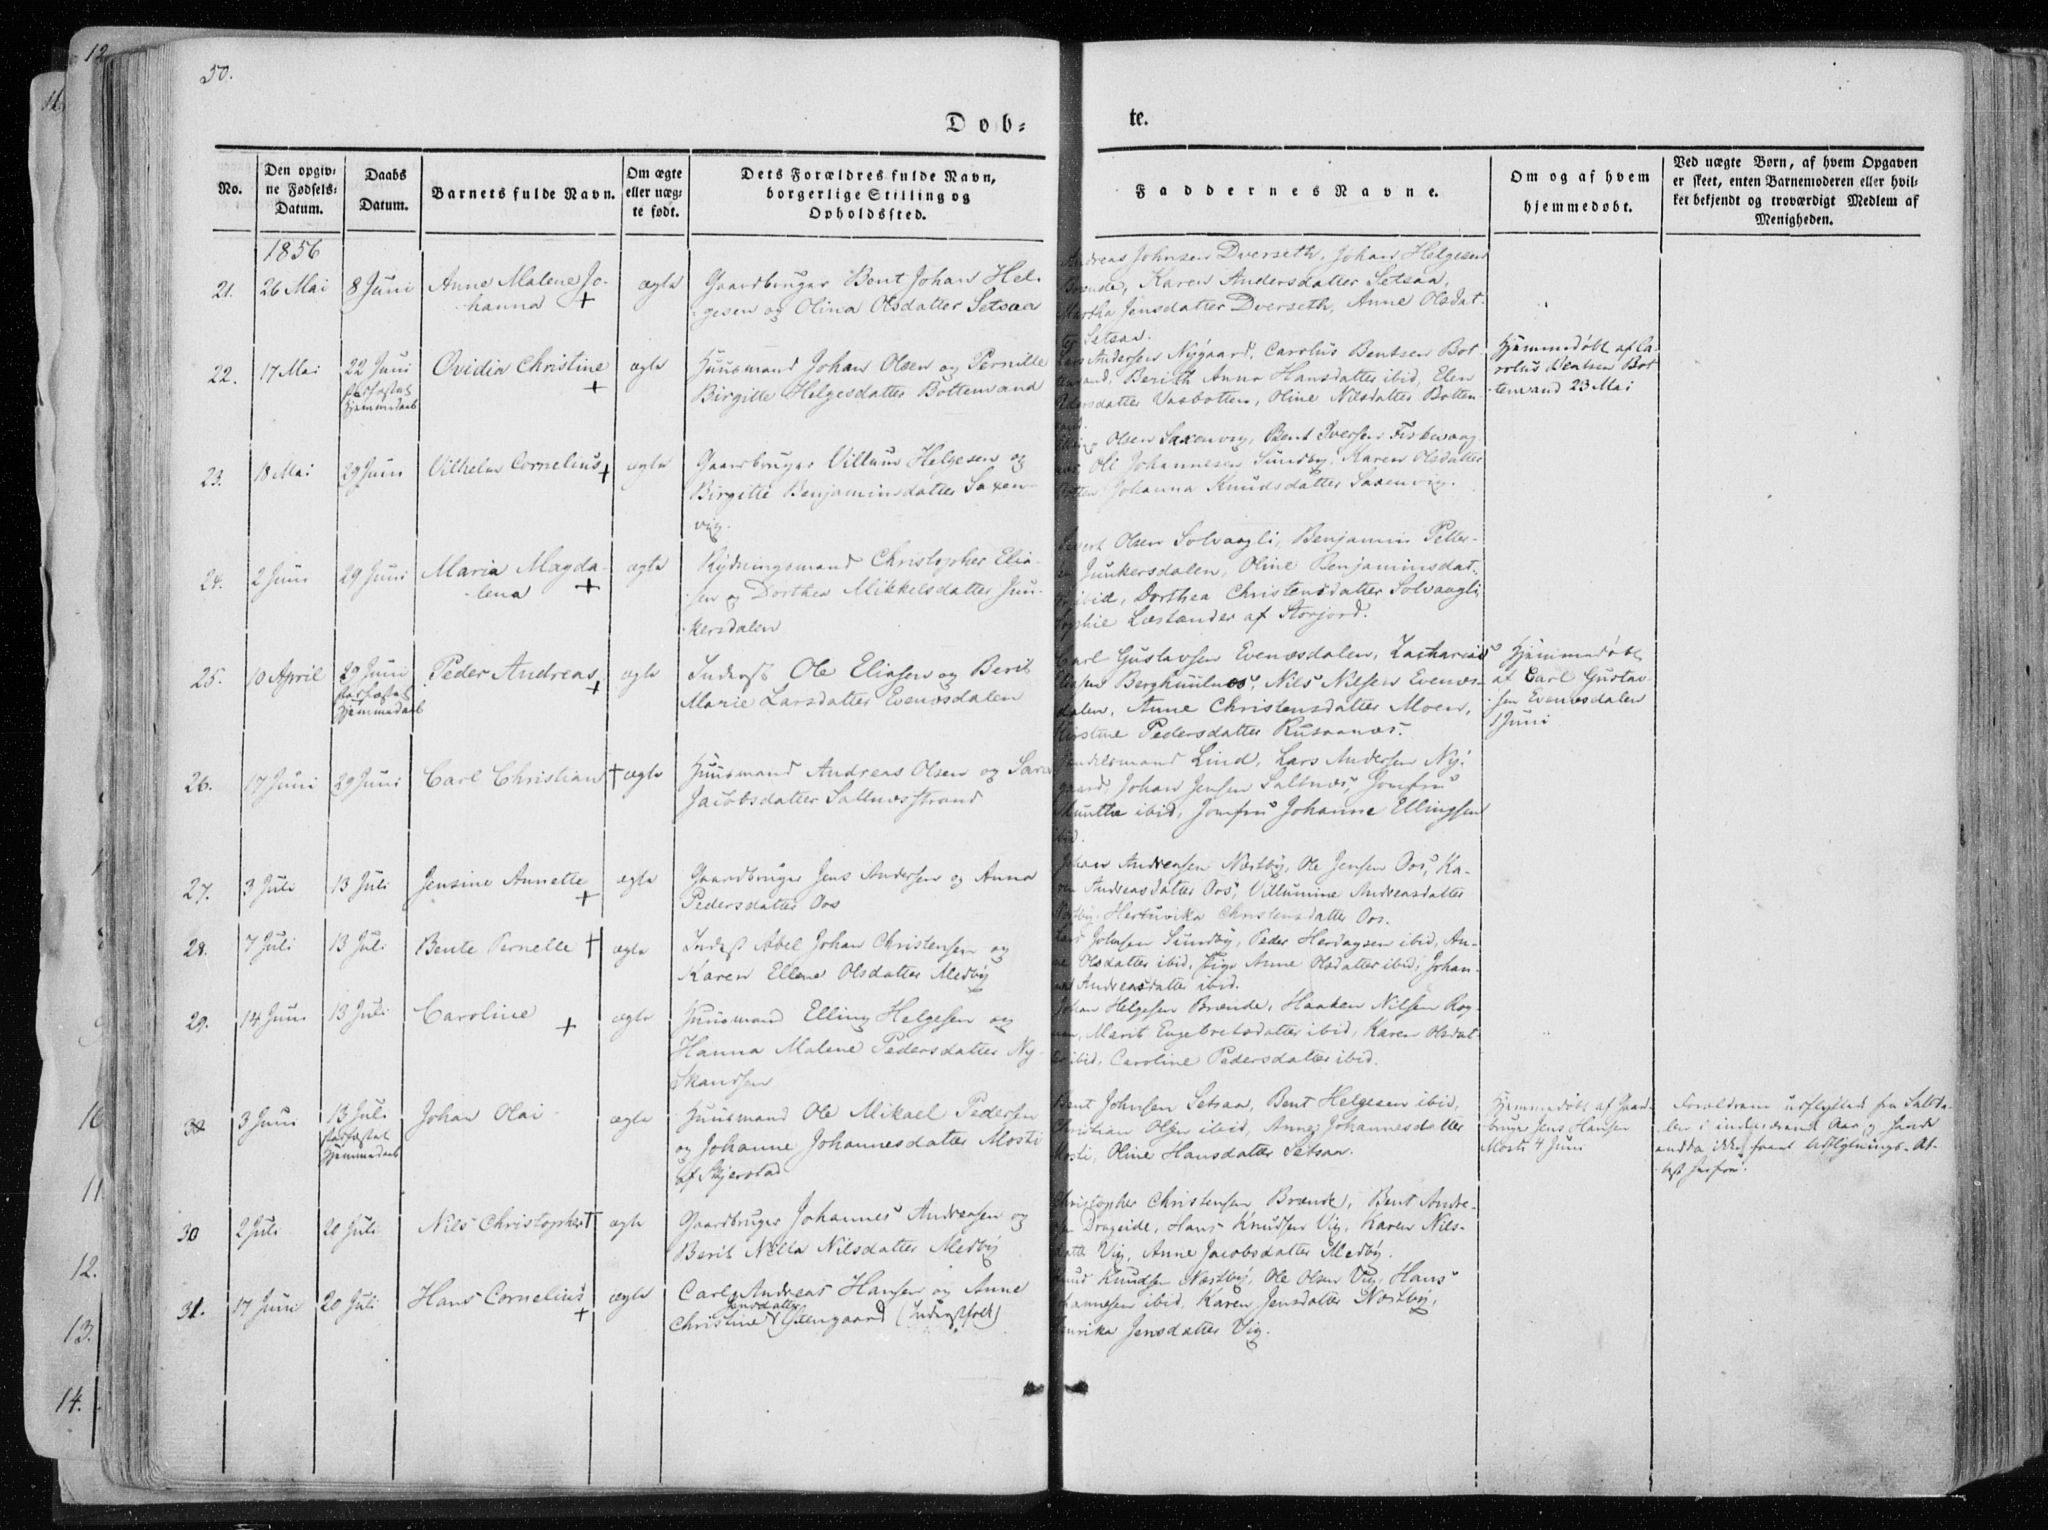 50.
Døb-
te.
No.
Den opgiv-
ne Fødsels-
Datum.
Daabs
Datum.
Barnets fulde Navn.
Om ægte
eller uæg-
te født.
Dets Forældres fulde Navn,
borgerlige Stilling og
Opholdssted.
Faddernes Navne.
Om og af hvem
hjemmedøbt.
Ved uægte Børn, af hvem Opgaven
er skeet, enten Barnemoderen eller hvil-
ket bekjendt og troværdigt Medlem af
Menigheden.
1856
21. 26 Mai 8 Juni Anne Malene Jo-
hanna + ægte
Gaardbruger Bent Johan Hel-
gesen og Olina Olsdatter Setsaa
Andreas Johnsen Dverseth, Johan Helgesen
Brænde, Karen Andersdatter Setsaa,
Martha Jensdatter Dverseth, Anne Olsdat-
ter Setsaa.
22. 17 Mai 22 Juni
stadfæstet
Hjemmedaab
Ovidia Christine + ægte
Huusmand Johan Olsen og Pernille
Birgitte Helgesdatter Bottenvand
Lars Andersen Nygaard, Carolus Bentsen Bot-
tenvand, Berith Anna Hansdatter ibid, Elen
Pedersdatter Vasbotten, Oline Nilsdatter Botten-
vand.
Hjemmedøbt af Ca-
rolus Bentsen Bot-
tenvand 23 Mai
23. 18 Mai 29 Juni Vilhelm Cornelius + ægte
Gaardbruger Villum Helgesen og
Birgitte Benjaminsdatter Saxen-
vig.
Olsen Saxenvig, Bent Iversen Fiskevaag
Oli Johannesen Sundby, Karen Olsdatter
Botten, Johanna Knudsdatter Saxenvig.
24. 2 Juni 29 Juni Maria Magda-
lena + ægte
Rydningsmand Christopher Elia-
sen og Dorthea Mikkelsdatter Jun-
kersdalen
Sivert Olsen Solvaagli, Benjamin Petter-
sen Junkersdalen, Oline Benjaminsdat-
ter ibid, Dorthea Christensdatter Solvaagli
Sophie Læstander af Storjord.
25. 10 April 29 Juni
stadfæstet
Hjemmedaab
Peder Andreas + ægte
Inderst Ole Eliasen og Berit
Marie Larsdatter Evenæsdalen
Carl Gustavsen Evenæsdalen, Zacharias
Eliasen Berghuulnes, Nils Nilsen Evenæs-
dalen, Anne Christensdatter Moen,
Kirstine Pedersdatter Rusaanæs.
Hjemmedøbt
af Carl Gustav-
sen Evenæsdalen
1 Juni
26. 17 Juni 29 Juni Carl Christian + ægte
Huusmand Andreas Olsen og Sara
Jacobsdatter Saltnæsstrand
Handelsmand Lind, Lars Andersen Ny-
gaard, Johan Jensen Saltnæs, Jomfru
Munthe ibid, Jomfru Johanne Ellingsen
ibid.
27. 3 Juli 13 Juli Jensine Annette + ægte
Gaardbruger Jens Andersen og Anna
Pedersdatter Oos
Johan Andreasen Næstby, Ole Jensen Oos, Ka-
ren Andreasdatter Oos, Villumine Andreasdatter
Næstby, Hertuvika Christensdatter Oos.
28. 7 Juli 13 Juli Bente Pernelle + ægte
Inderst Abel Johan Christensen og
Karen Ellene Olsdatter Medby
Lars Johnsen Sundby, Peder Herdagsen ibid, An-
ne Olsdatter ibid, Pige Anne Olsdatter ibid, Johan-
na Andreasdatter ibid.
29. 14 Juni 13 Juli Caroline + ægte
Huusmand Elling Helgesen og
Hanna Malene Pedersdatter Ny-
Skandsen
Johan Helgesen Brænde, Haaken Nilsen Rog-
nan, Marit Engebretsdatter ibid, Karen Olsdat-
ter ibid, Caroline Pedersdatter ibid.
30 3 Juni 13 Juli
stadfæstet
Hjemmedaab
Johan Olai ægte
Huusmand Ole Mikael Pedersen
og Johanne Johannesdatter Mosti
af Skjerstad
Bent Johnsen Setsaa, Bent Helgesen ibid,
Christian Olsen ibid, Anne Johannesdatter
Mosti, Oline Hansdatter Setsaa.
Hjemmedøbt af Gaard-
bruger Jens Hansen
Mosti 4 Juni
Forældrene udflyttet fra Saltda-
len i indeværende Aar og havde
endda ikke faaet Udflytnings-At-
test herfra.
30 2 Juli 20 Juli Nils Christopher + ægte
Gaardbruger Johannes Andreasen og
Berit Nilla Nilsdatter Medby
Christopher Christensen Brænde, Bent Andre-
sen Drageide, Hans Knudsen Vig, Karen Nils-
datte Vig, Anne Jacobsdatter Medby.
31. 17 Juni 20 Juli Hans Cornelius + ægte
Carl Andreas Hansen og Anne
Jensdatter
Christine Steengaard (Inderstfolk)
Knud Knudsen Næstby, Ole Olsen Vig, Hans
Johannesen ibid, Karen Jensdatter Næstby,
Henrika Jensdatter Vig.
12
11.
16
11.
12.
13.
14.